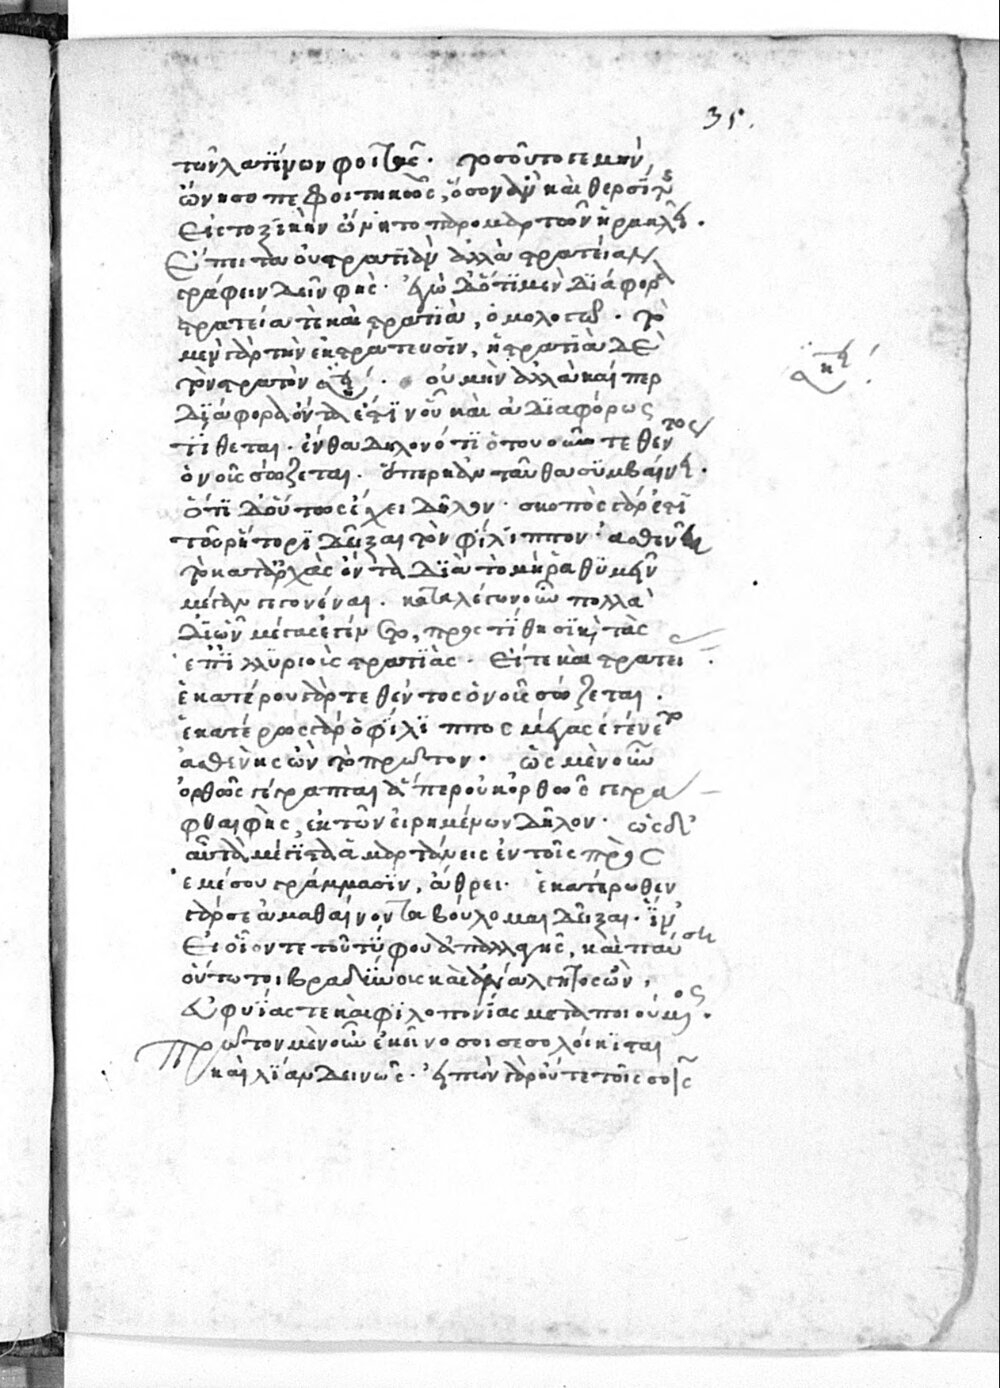 35.
τῶν λατίνων φοιτᾶς. τοσοῦτο γε μὴν
ὤνησο πεφοιτηκὼς, ὅσον ἂν καὶ θερσίτης
εἰς τοξικὴν ὤνητο παρομαρτῶν ἡρακλεῖ.
Εἶτα οὐ στρατιὰν ἀλλὰ στρατείαν
γράφειν δεῖν φής. ἐγὼ δ' ὅτι μὲν διάφορα
στρατεία τὲ καὶ στρατιὰ, ὁμολογῶ. τὸ
μὲν γὰρ τὴν ἐκστράτευσιν, ἡ στρατιὰ δὲ
τὸν στρατὸν. οὐ μὴν ἀλλὰ καί περ
διάφορα ὄντα ἐστὶν οὗ καὶ ἀδιαφόρως
τίθεται. ἔνθα δηλονότι ὁποτέρου τεθέντος
ὁ νοῦς σώζεται. ὅπερ κἀνταῦθα συμβαίνει.
ὅτι δ' οὕτως ἔχει δῆλον. σκοπὸς γάρ ἐστι
τῷ ῥήτορι δεῖξαι τὸν φίλιππον ἀσθενῆ
τὸ καταρχὰς ὄντα διὰ τὸ μὴ ῥαθυμεῖν
μέγαν γεγονέναι. καταλέγων οὖν πολλὰ
δι' ὧν μέγας ἐγένετο, προστίθησι καὶ τὰς
ἐπ' ἰλλυριοὺς στρατιὰς. Εἴτε καὶ στρατεί
ἑκατέρου γάρ τεθέντος ὁ νοῦς σώζεται.
ἑκατέρως γάρ ὁ φίλιππος μέγας ἐγένετο
ἀσθενὴς ὢν τὸ πρῶτον. ὡς μὲν οὖν
ὀρθῶς γέγραπται ἅπερ οὐκ ὀρθῶς γεγρά
φθαι φής, ἐκ τῶν εἰρημένων δῆλον. ὡς δ'
αὖ τὰ μέγιστα ἁμαρτάνεις ἐν τοῖς πρὸς
ἐμέ σου γράμμασιν, ἄθρει. ἑκατέρωθεν
γάρ σε ἀμαθαίνοντα βούλομαι δεῖξαι. ἵν'
Εἰ οἷόν τε τοῦ τύφου ἀπαλλαγῆς, καὶ παύσῃ
οὕτωτοι βραδύνους καὶ ἀνάλγητος ὢν,
εὐφυΐας τε καὶ φιλοπονίας μεταποιούμενος.
Πρῶτον μὲν οὖν ἐκεῖνο σοι σεσολοίκισται
καὶ λίαν δεινῶς. εἰπὼν γάρ οὔτε τοῖς σοῖς